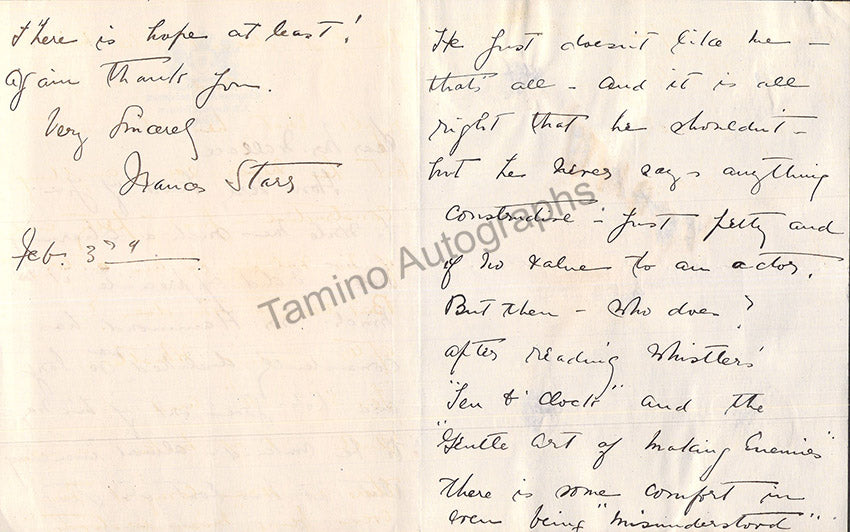 there is hope at least!
Again thank you.
Very Sincerely
Frances Starr
Feb. 3rd
He just doesn't like me –
that's all – and it is all
right that he shouldn't –
but he never says anything
constructive – just petty and
of no value to an actor.
But then – who does?
After reading Whistler's
"Ten O'Clock" and the
"Gentle Art of Making Enemies"
there is some comfort in
even being "misunderstood"
Tamino Autographs